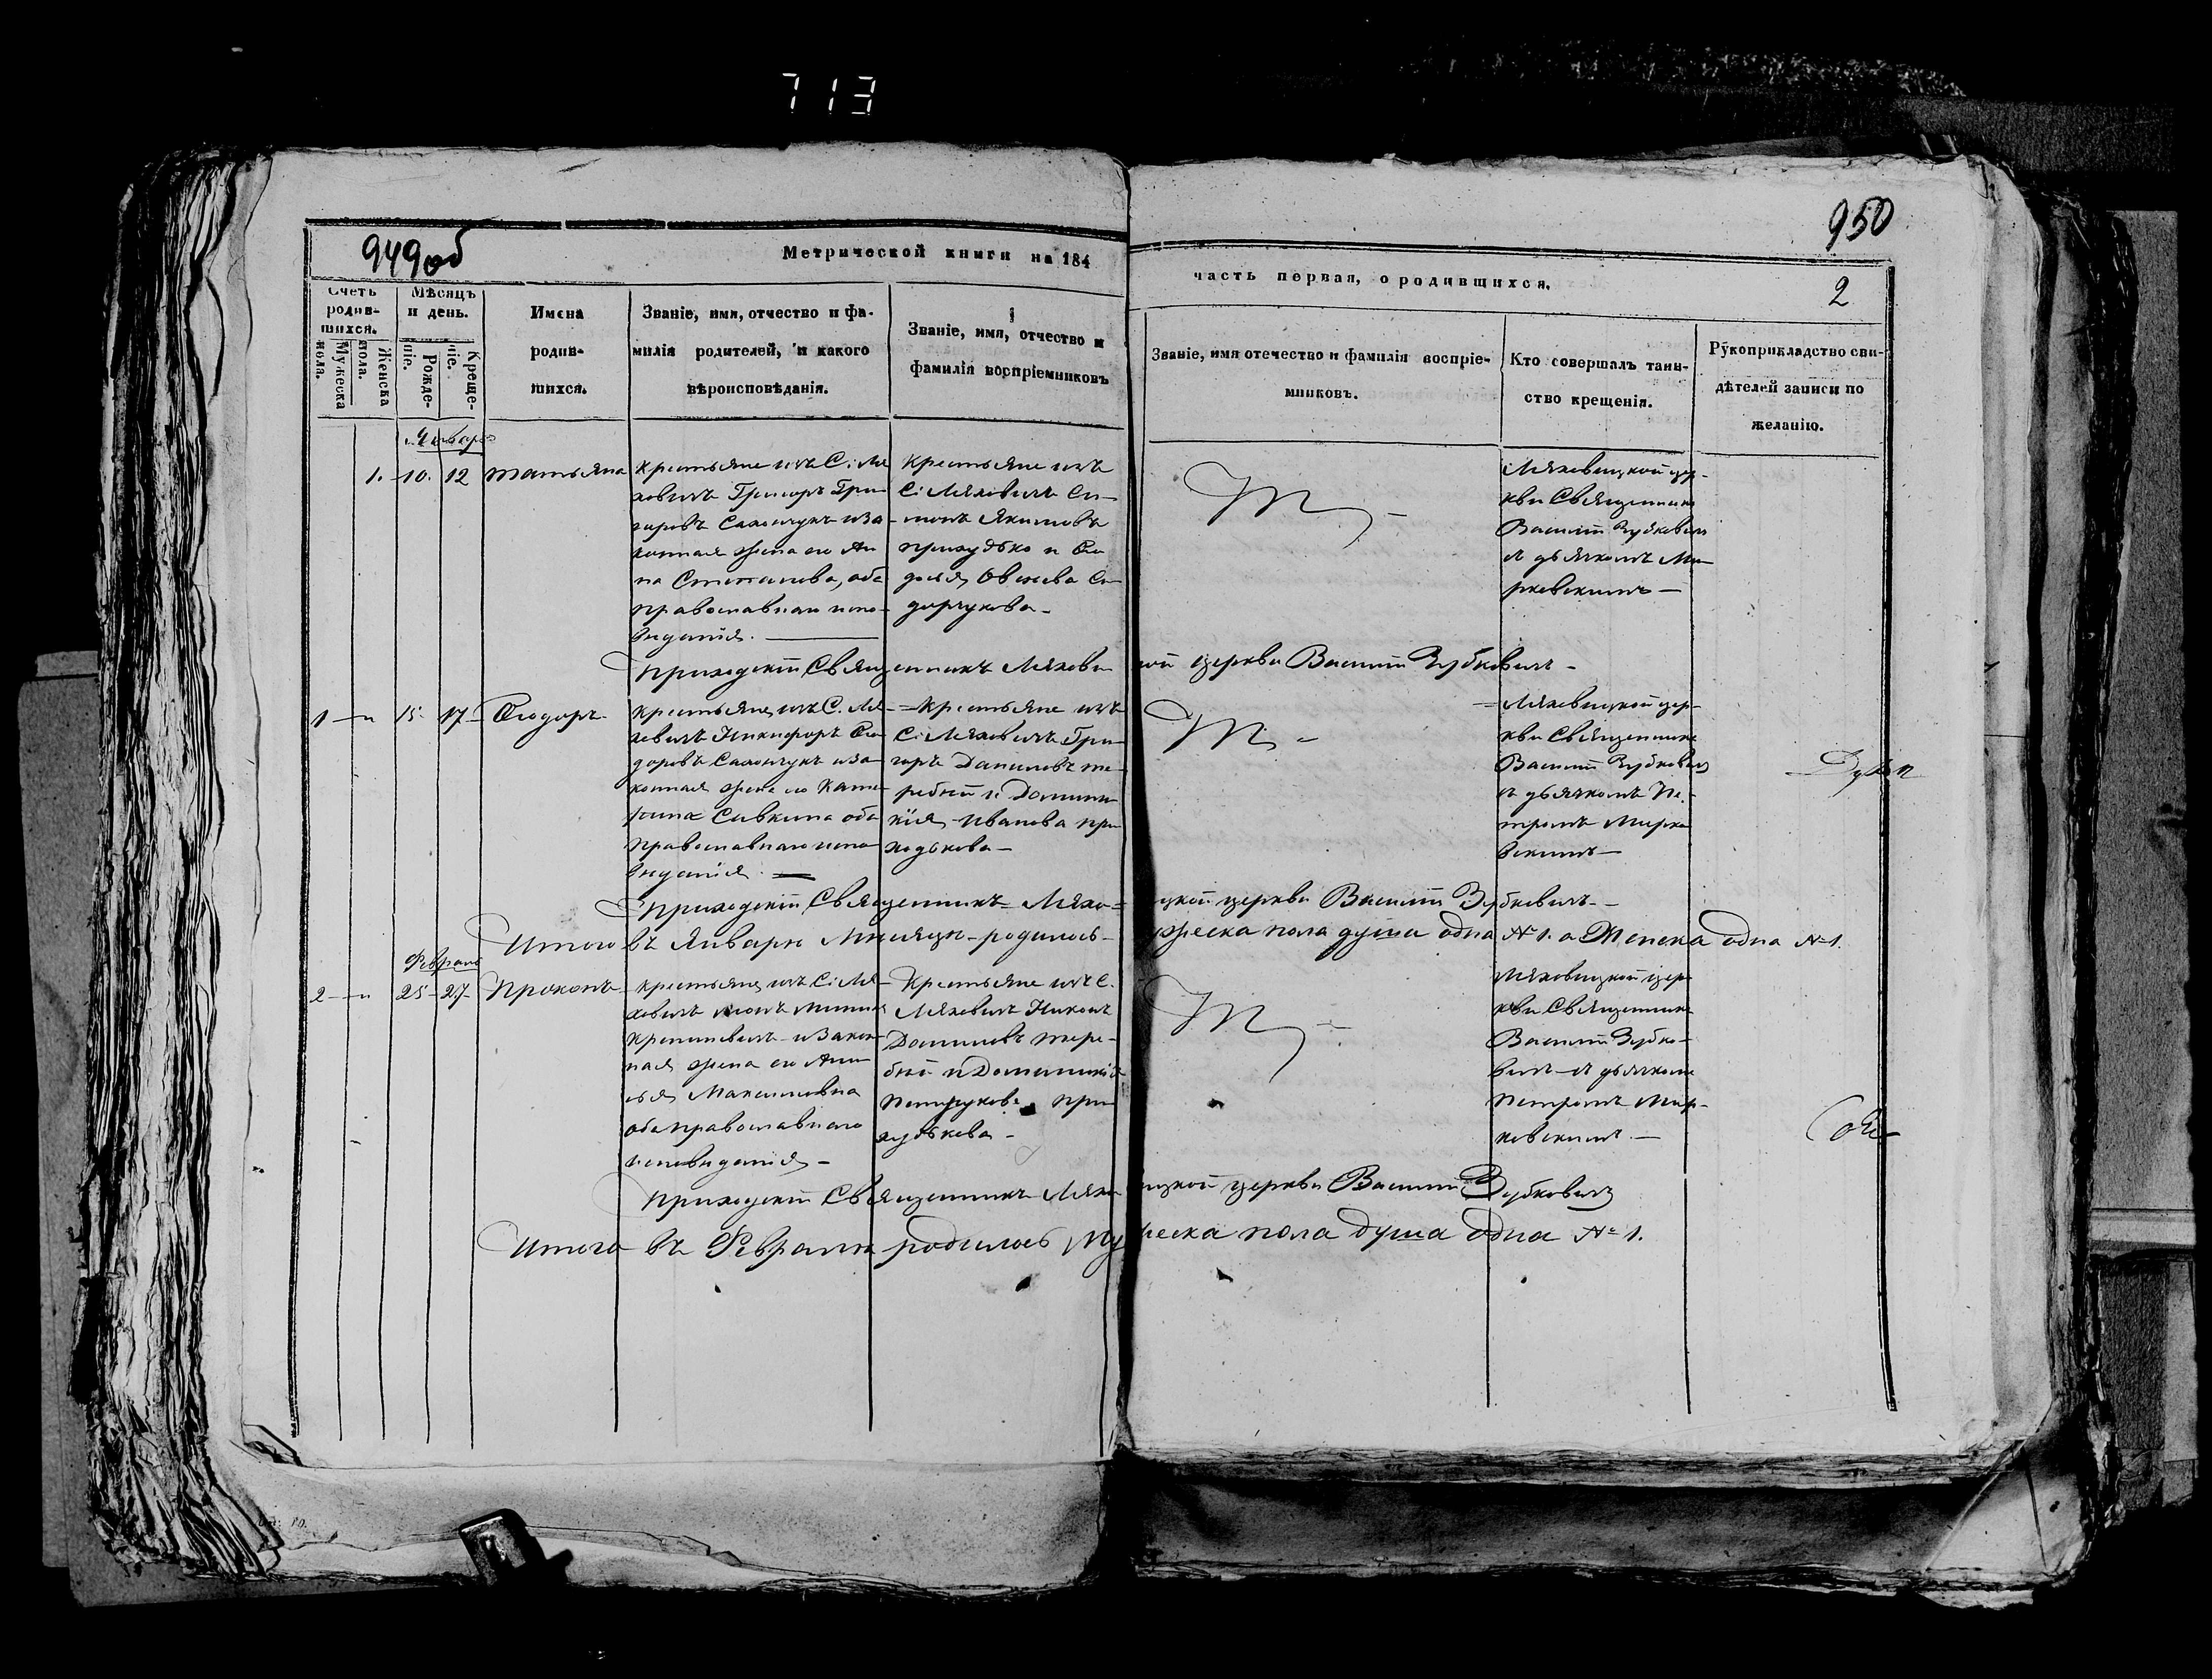 713
949об
950
Метрической книги на 184
часть первая, о родившихся.
2
Счетъ родив-шихся.
Мужеска пола.
Женска пола.
Мѣсяцъ и день.
Рожде-ніе.
Креще-ніе.
Имена
родив-
шихся.
Званіе, имя, отчество и фа-
милія родителей, и какого
вѣроисповѣданія.
Званіе, имя, отчество и
фамилія воспріемниковъ
Званіе, имя отечество и фамилія воспріе-
мниковъ.
Кто совершалъ таин-
ство крещенія.
Рукоприкладство сви-
дѣтелей записи по
желанію.
Январь
1. 10. 12 Татьяна
Крестьяне изъ С: Ля
ховичъ Григоръ Гри
горовъ
конная жена его Ан
на Степанова, оба
православнаго испо-
вѣданія.
Крестьяне изъ
С: Ляховичъ Си-
монъ Якимовъ
и
Сидорчукова-
Ляховицкой цер-
кви Священникъ
Василій Зубковичъ
съ дьячкомъ Мир
ковскимъ —
Приходскій Священникъ Ляховицкой церкви Василій Зубковичъ -
1 — " 15 17 Ѳеодоръ
Крестьяне изъ С. Ля-
ховичъ Никифоръ Ѳео
доровъ
конная жена его Кате
рина Савкина оба
православнаго испо
вѣданія. —
Крестьяне изъ
С: Ляховичъ Гри
горъ Даниловъ Те
ребей и Домини
кія Иванова При
ходькова —
Ляховицкой цер-
кви Священникъ
Василій Зубковичъ
съ дьячкомъ Пе-
тромъ Мирко
вскимъ —
Приходскій Священникъ Ляховицкой церкви Василій Зубковичъ -
Итого въ Январѣ Мѣсяцѣ родилось мужеска пола душа одна № 1. а Женска одна № 1.
Февраль
2 — " 25 - 27 - Прокопъ
Крестьяне изъ С: Ля
ховичъ
и закон
ная жена его
Максимовна
оба православнаго
исповѣданія -
Крестьяне изъ С.
Ляховичъ Никонъ
Даниловъ Тере-
бей и Доминикія
Петрукова При
ходькова -
Ляховицкой цер
кви Священникъ
Василій Зубко-
вичъ съ дьячкомъ
Петромъ Мир-
ковскимъ. —
Приходскій Священникъ Ляховицкой церкви Василій Зубковичъ
Итого въ Февралѣ родилось мужеска пола душа одна № 1.